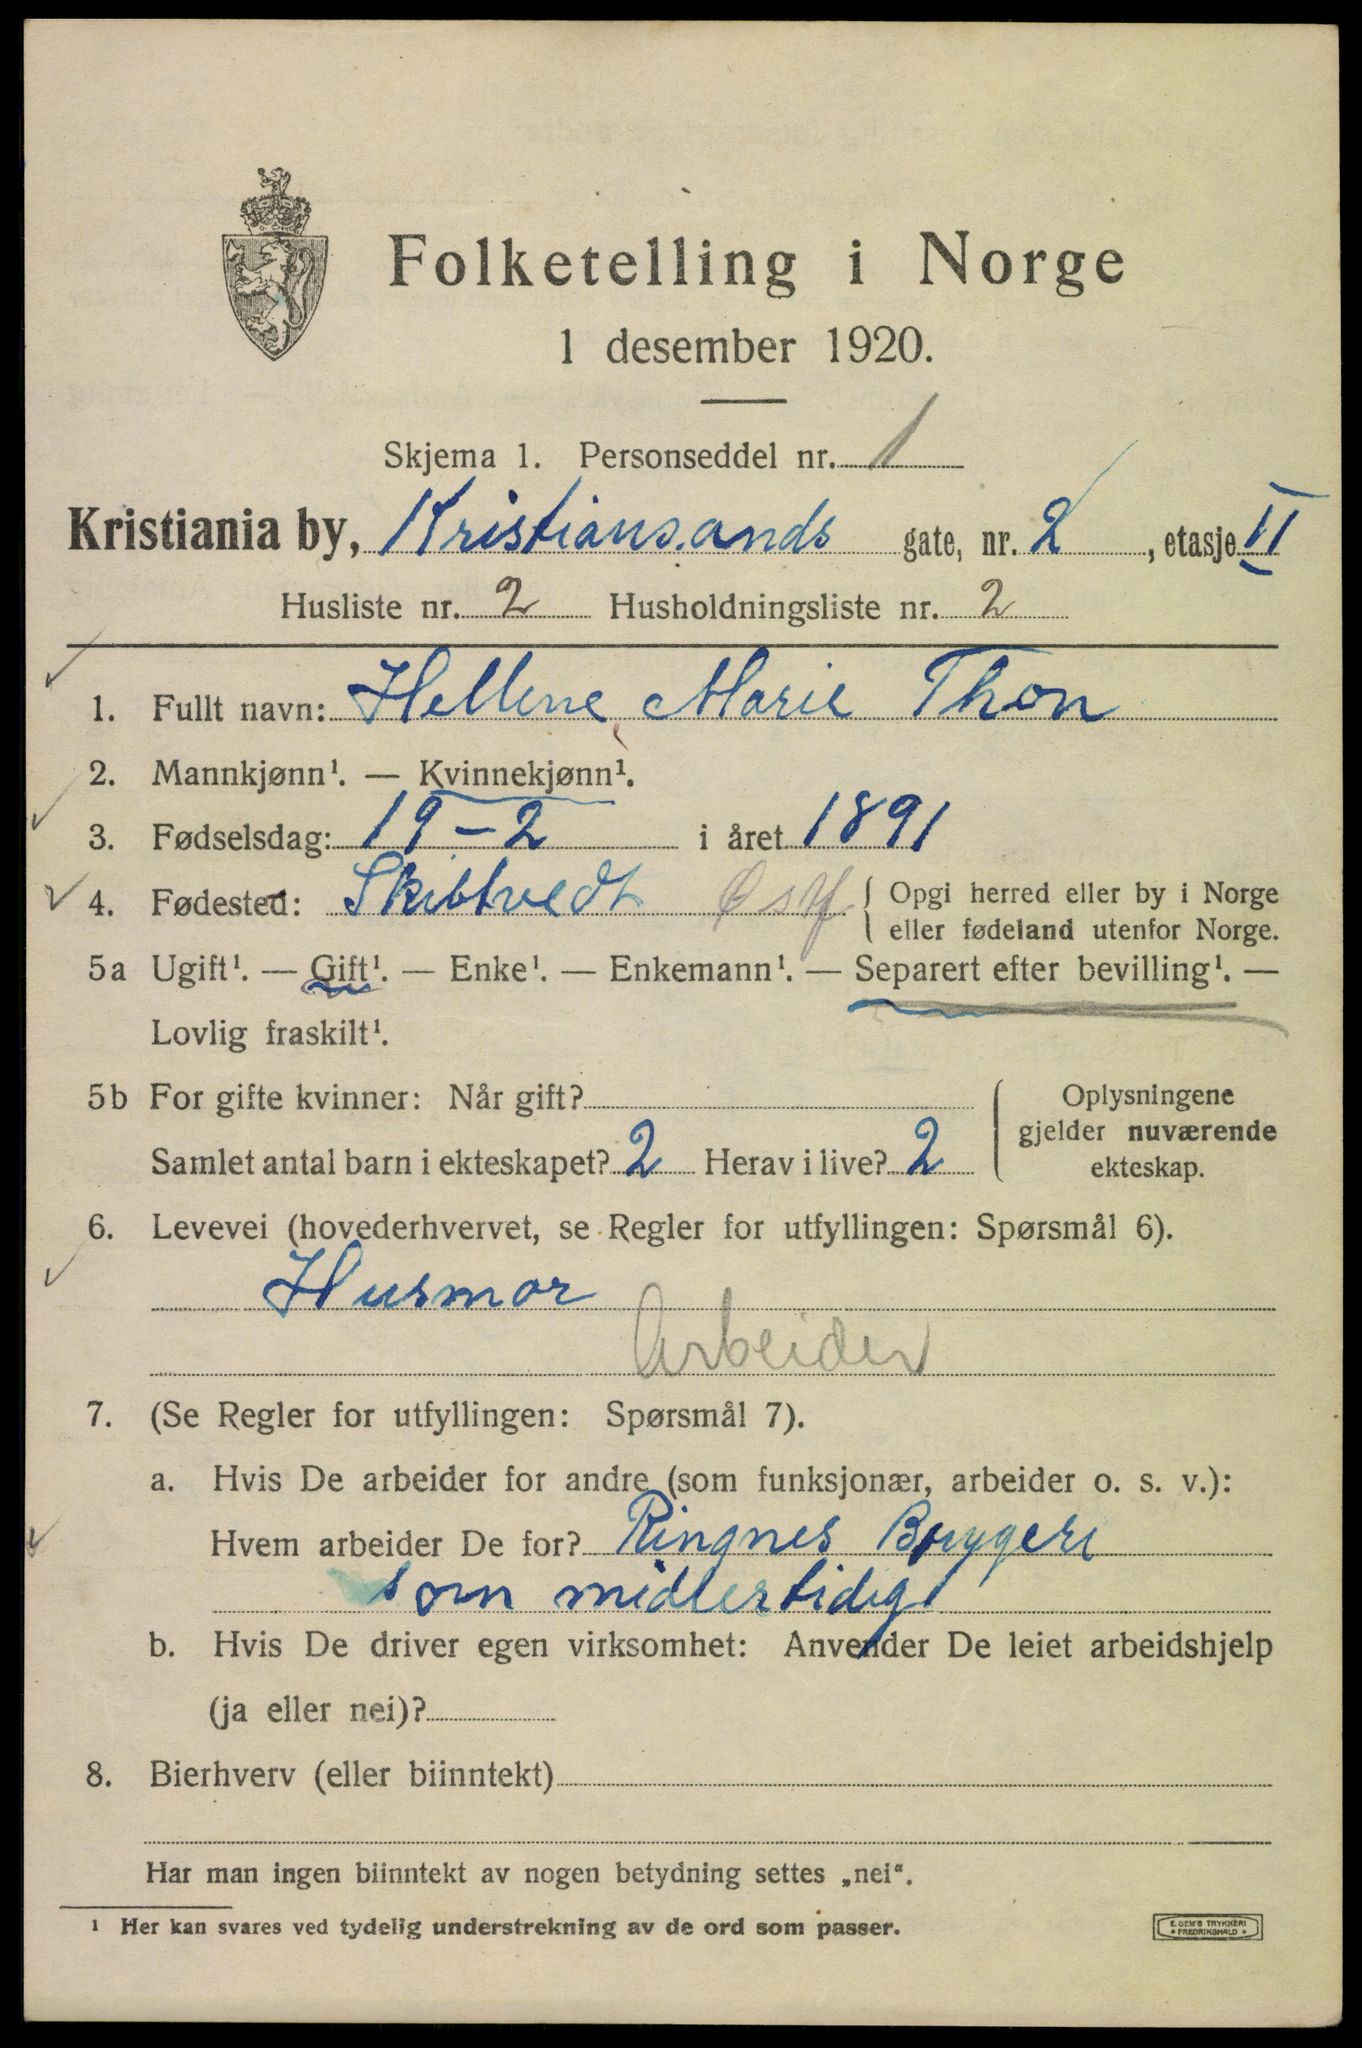 Folketelling i Norge
1 desember 1920.
Skjema 1. Personseddel nr. 1
Kristiania by, Kristiansands gate, nr. 2, etasje II
Husliste nr. 2 Husholdningsliste nr. 2
1. Fullt navn: Hellene Marie Thon
2. Mannkjønn¹. — Kvinnekjønn¹.
3. Fødselsdag: 19-2 i året 1891
4. Fødested: Skibtvedt Østf { Opgi herred eller by i Norge
eller fødeland utenfor Norge.
5a Ugift¹. — Gift¹. — Enke¹. — Enkemann¹. — Separert efter bevilling¹. —
Lovlig fraskilt¹.
5b For gifte kvinner: Når gift?
Samlet antal barn i ekteskapet? 2 Herav i live? 2
Oplysningene
gjelder nuværende
ekteskap.
6. Levevei (hovederhvervet, se Regler for utfyllingen: Spørsmål 6).
Husmor
Arbeider
7. (Se Regler for utfyllingen: Spørsmål 7).
a. Hvis De arbeider for andre (som funksjonær, arbeider o. s. v.):
Hvem arbeider De for? Ringnes Bryggeri
som midlertidig
b. Hvis De driver egen virksomhet: Anvender De leiet arbeidshjelp
(ja eller nei)?
8. Bierhverv (eller biinntekt)
Har man ingen biinntekt av nogen betydning settes „nei“.
¹ Her kan svares ved tydelig understrekning av de ord som passer.
E. SEM'S TRYKKERI
* FREDRIKSHALD *